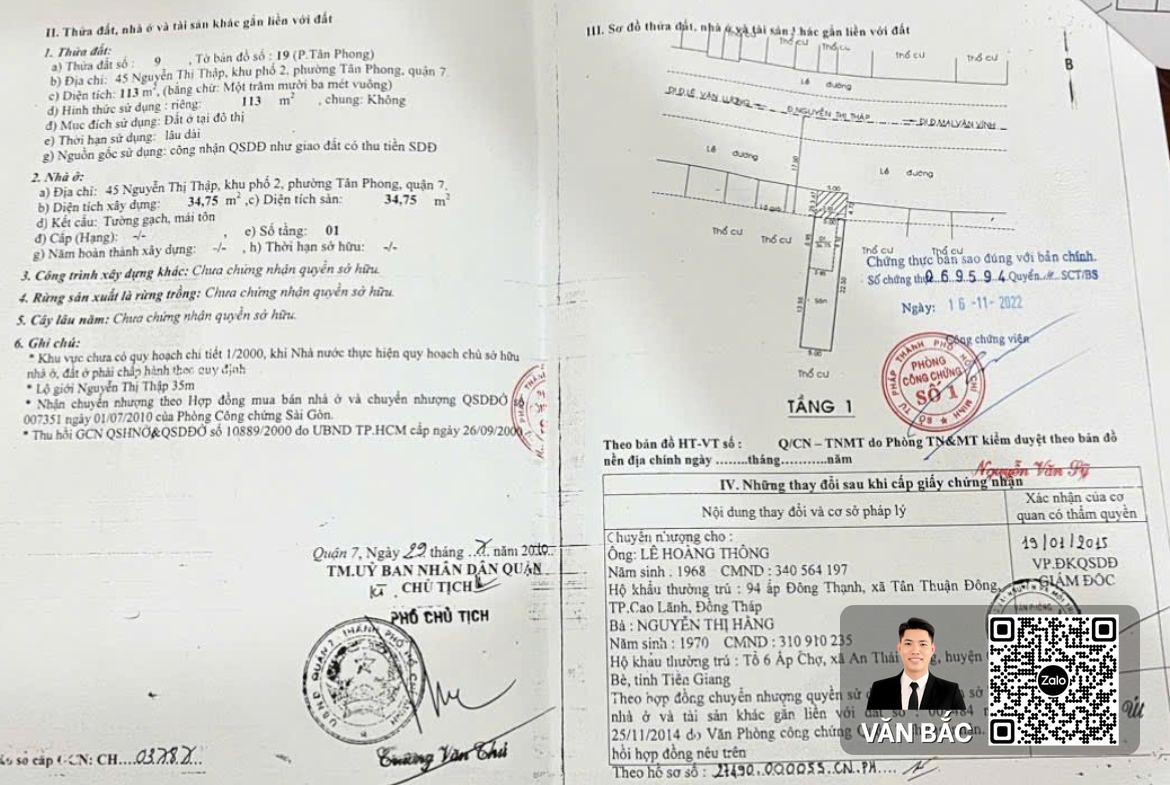 II. Thửa đất, nhà ở và tài sản khác gắn liền với đất
1. Thửa đất:
a) Thửa đất số : 9 , Tờ bản đồ số : 19 (P.Tân Phong)
b) Địa chỉ: 45 Nguyễn Thị Thập, khu phố 2, phường Tân Phong, quận 7
c) Diện tích: 113 m², (bằng chữ: Một trăm mười ba mét vuông)
d) Hình thức sử dụng : riêng: 113 m² , chung: Không
đ) Mục đích sử dụng: Đất ở tại đô thị
e) Thời hạn sử dụng: lâu dài
g) Nguồn gốc sử dụng: công nhận QSDĐ như giao đất có thu tiền SDĐ
2. Nhà ở:
a) Địa chỉ: 45 Nguyễn Thị Thập, khu phố 2, phường Tân Phong, quận 7.
b) Diện tích xây dựng: 34,75 m² ,c) Diện tích sàn: 34,75 m²
d) Kết cấu: Tường gạch, mái tôn
đ) Cấp (Hạng): -/- , e) Số tầng: 01
g) Năm hoàn thành xây dựng: -/- , h) Thời hạn sở hữu: -/-
3. Công trình xây dựng khác: Chưa chứng nhận quyền sở hữu.
4. Rừng sản xuất là rừng trồng: Chưa chứng nhận quyền sở hữu.
5. Cây lâu năm: Chưa chứng nhận quyền sở hữu.
6. Ghi chú:
* Khu vực chưa có quy hoạch chi tiết 1/2000, khi Nhà nước thực hiện quy hoạch chủ sở hữu
nhà ở, đất ở phải chấp hành theo quy định
* Lộ giới Nguyễn Thị Thập 35m
* Nhận chuyển nhượng theo Hợp đồng mua bán nhà ở và chuyển nhượng QSDĐỞ số
007351 ngày 01/07/2010 của Phòng Công chứng Sài Gòn.
* Thu hồi GCN QSHNỞ&QSDĐỞ số 10889/2000 do UBND TP.HCM cấp ngày 26/09/2000
Quận 7, Ngày 29 tháng .7. năm 2010..
TM.UỶ BAN NHÂN DÂN QUẬN
KT. CHỦ TỊCH
PHÓ CHỦ TỊCH
Trương Văn Thư
số cấp GCN: CH....03787...
III. Sơ đồ thửa đất, nhà ở và tài sản khác gắn liền với đất
Thổ cư Thổ cư Thổ cư Thổ cư
B
Lề đường
ĐI.Đ.LÊ VĂN LƯƠNG Đ.NGUYỄN THỊ THẬP ĐI.Đ.MAI VĂN VĨNH
Lề đường
Lề đường
17.50
5.00
Thổ cư Thổ cư Thổ cư Thổ cư
Sân
22.50
5.00
Thổ cư
Chứng thực bản sao đúng với bản chính.
Số chứng thực 069594 Quyển SCT/BS
Ngày: 16-11-2022
Công chứng viên
SỞ TƯ PHÁP THÀNH PHỐ HỒ CHÍ MINH
PHÒNG
CÔNG CHỨNG
SỐ 1
TẦNG 1
Theo bản đồ HT-VT số : Q/CN – TNMT do Phòng TN&MT kiểm duyệt theo bản đồ
nền địa chính ngày ........tháng...........năm
Nguyễn Văn Sỹ
IV. Những thay đổi sau khi cấp giấy chứng nhận
Nội dung thay đổi và cơ sở pháp lý
Xác nhận của cơ
quan có thẩm quyền
Chuyển nhượng cho :
Ông: LÊ HOÀNG THÔNG
Năm sinh : 1968 CMND : 340 564 197
Hộ khẩu thường trú : 94 ấp Đông Thạnh, xã Tân Thuận Đông,
TP.Cao Lãnh, Đồng Tháp
Bà : NGUYỄN THỊ HẰNG
Năm sinh : 1970 CMND : 310 910 235
Hộ khẩu thường trú : Tổ 6 Ấp Chợ, xã An Thái huyện
Bè, tỉnh Tiền Giang
Theo hợp đồng chuyển nhượng quyền sử
nhà ở và tài sản khác gắn liền với đất số :
25/11/2014 do Văn Phòng công chứng
hồi hợp đồng nêu trên
Theo hồ sơ số : 27490.000055.CN.PH....
19/01/2015
VP.ĐKQSDĐ
GIÁM ĐỐC
VĂN BẮC
Zalo